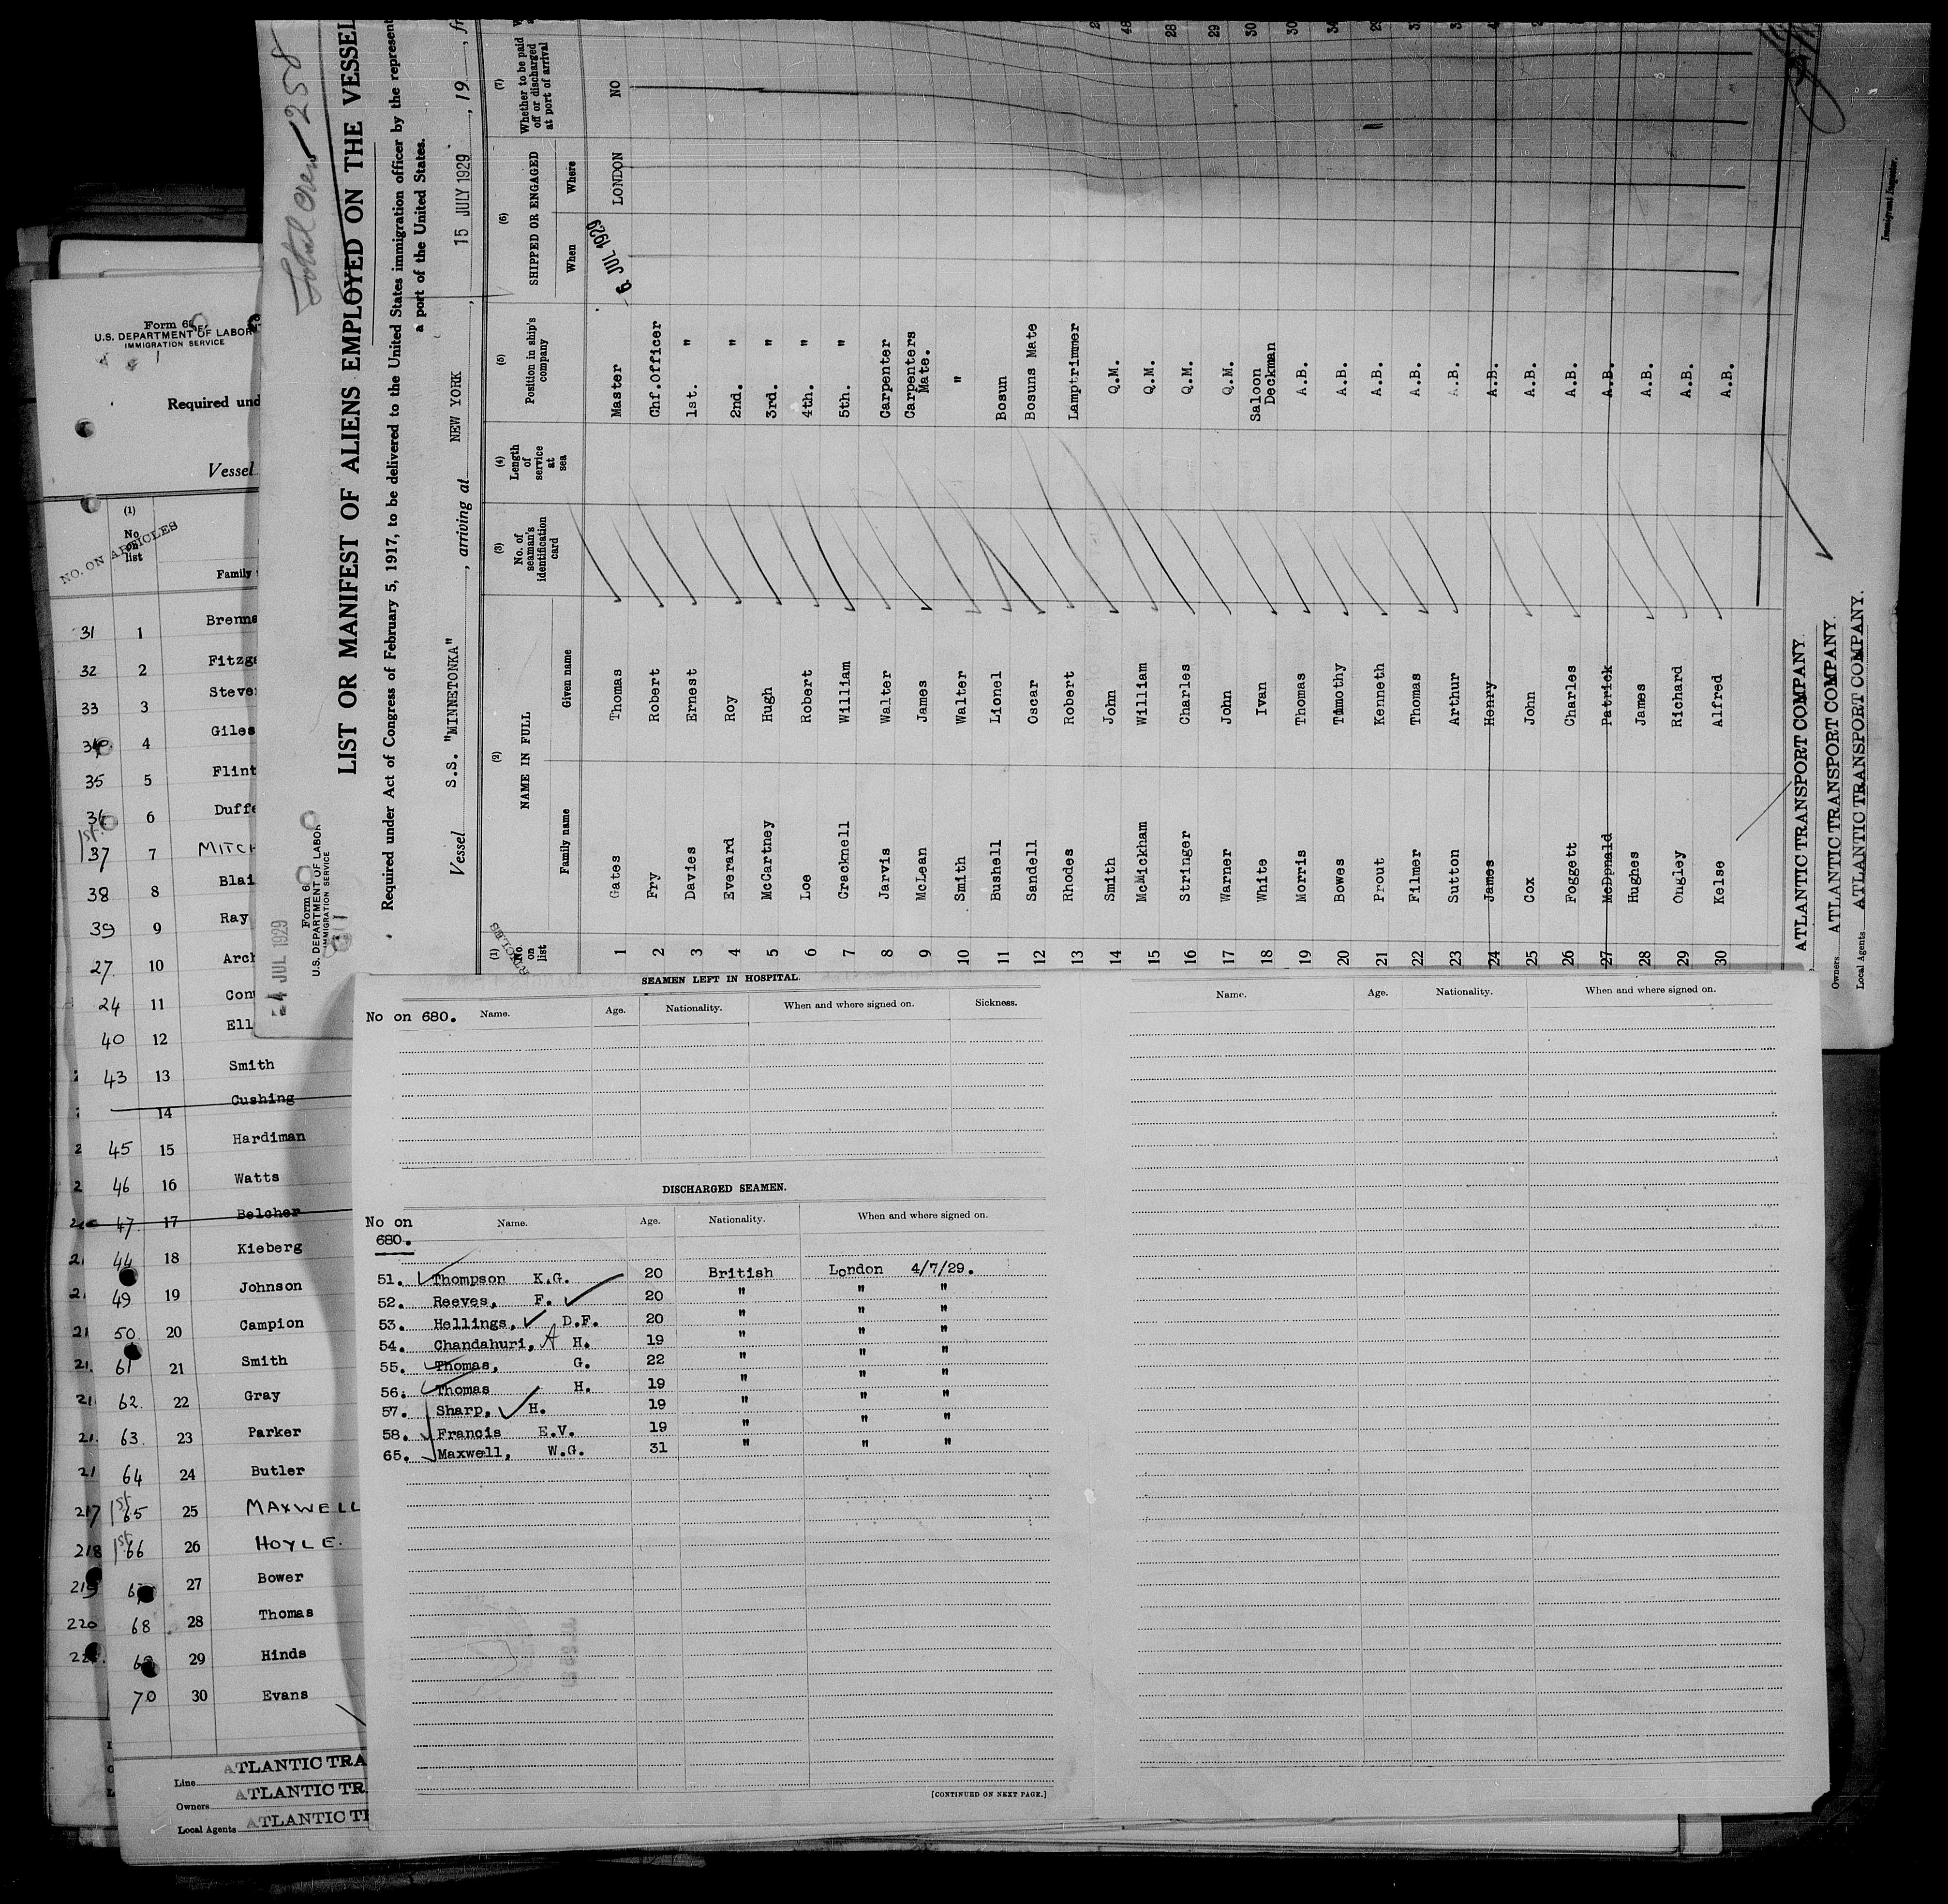 Form 68
U.S. DEPARTMENT OF LABOR
IMMIGRATION SERVICE
Required
Vessel
NO. ON ARTICLES
(1)
No on list
Family
31 1
32 2
33 3
4
35 5
36 6
1st 37 7
38 8
39 9 Ray
27. 10
24 11
40 12
43 13 Smith
14 Cushing
45 15 Hardiman
46 16 Watts
47. 17 Belcher
44 18 Kieberg
49 19 Johnson
50. 20 Campion
61 21 Smith
62. 22 Gray
63. 23 Parker
64 24 Butler
217 1st 65 25 MAXWELL
218 1st 66 26 HOYLE.
219 27 Bower
220 68 28 Thomas
29 Hinds
70 30 Evans
Line
Owners
Local Agents
ATLANTIC
ATLANTIC
ATLANTIC
Total Crew 258
4 JUL 1929
Form 6
U.S. DEPARTMENT OF LABOR
IMMIGRATION SERVICE
LIST OR MANIFEST OF ALIENS EMPLOYED ON THE VESSEL
Required under Act of Congress of February 5, 1917, to be delivered to the United States immigration officer by the
a port of the United States.
Vessel S.S. "MINNETONKA", arriving at NEW YORK, 15 JULY 1929, 19
(1) No on list
(2) NAME IN FULL
Family name Given name
(3) No. of seaman's identification card
(4) Length of service at sea
(5) Position in ship's company
(6) SHIPPED OR ENGAGED
When Where
(7) Whether to be paid off or discharged at port of arrival
1 Gates Thomas Master 6 JUL 1929 LONDON NO
2 Fry Robert Chf.Officer
3 Davies Ernest 1st. "
4 Everard Roy 2nd. "
5 McCartney Hugh 3rd. "
6 Loe Robert 4th. "
7 Cracknell William 5th. "
8 Jarvis Walter Carpenter
9 McLean James Carpenters Mate.
10 Smith Walter "
11 Bushell Lionel Bosun
12 Sandell Oscar Bosuns Mate
13 Rhodes Robert Lamptrimmer
14 Smith John Q.M.
15 McMickham William Q.M.
16 Stringer Charles Q.M.
17 Warner John Q.M.
18 White Ivan Saloon Deckman
19 Morris Thomas A.B.
20 Bowes Timothy A.B.
21 Prout Kenneth A.B.
22 Filmer Thomas A.B.
23 Sutton Arthur A.B.
24 James Henry A.B.
25 Cox John A.B.
26 Foggett Charles A.B.
27 McDonald Patrick A.B.
28 Hughes James A.B.
29 Ongley Richard A.B.
30 Kelse Alfred A.B.
ATLANTIC TRANSPORT COMPANY.
Owners ATLANTIC TRANSPORT COMPANY.
Local Agents ATLANTIC TRANSPORT COMPANY.
Immigrant Inspector.
SEAMEN LEFT IN HOSPITAL.
No on 680. Name. Age. Nationality. When and where signed on. Sickness.
DISCHARGED SEAMEN.
No on 680. Name. Age. Nationality. When and where signed on.
51. Thompson K.G. 20 British London 4/7/29.
52. Reeves, F. 20 " " "
53. Hellings, D.F. 20 " " "
54. Chandahuri, H. 19 " " "
55. Thomas, G. 22 " " "
56. Thomas H. 19 " " "
57. Sharp, H. 19 " " "
58. Francis E.V. 19 " " "
65. Maxwell, W.G. 31 " " "
[CONTINUED ON NEXT PAGE.]
Name. Age. Nationality. When and where signed on.